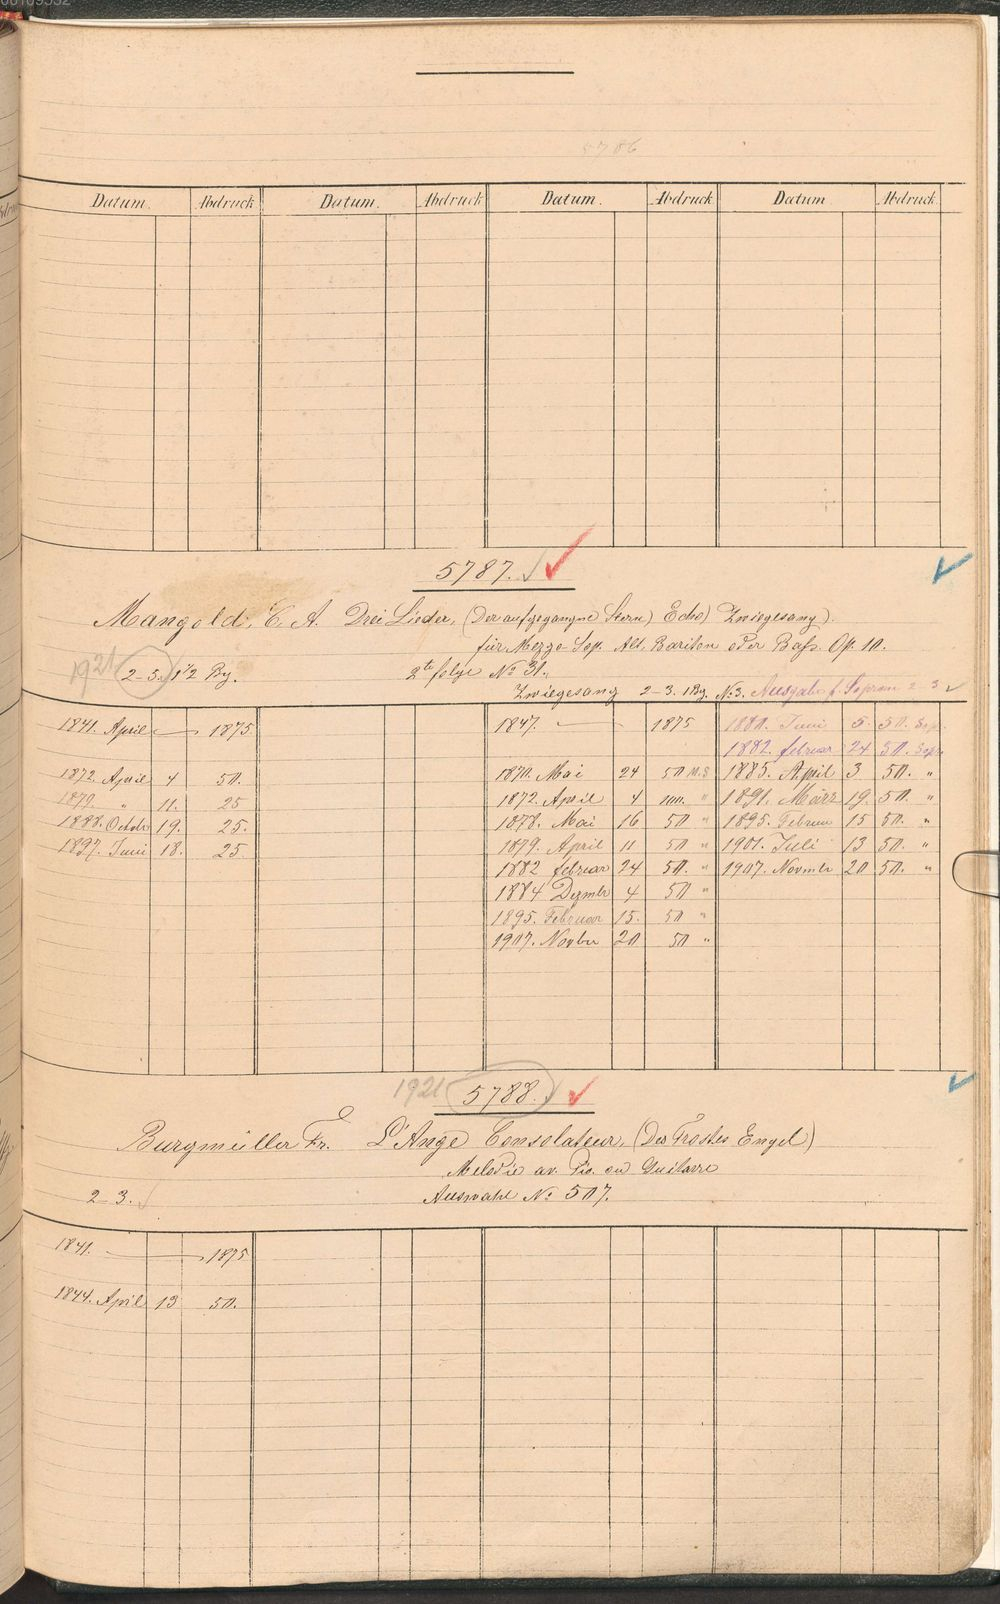 5786
Datum. Abdruck Datum. Abdruck Datum. Abdruck Datum Abdruck
5787.
Mangold, C. A. Drei Lieder, (Der aufgegangne Stern) Echo) Zwiegesang).
für Mezzo-Sop. Alt. Bariton oder Bass. Op. 10.
1921 2-3. 1 1/2 Bg. 2te folge No 31.
Zwiegesang 2-3. 1 Bg. No 3. Ausgabe f. Sopran 2-3
1841. April — 1875 1847. — 1875 1880. Juni 5. 50. Sop.
1882. februar 24 50. Sop.
1872. April 4 50. 1870. Mai 24 50 M.S 1885. April 3 50. "
1879. " 11. 25 1872. April 4 100. " 1891. März 19. 50. "
1888. Octobr 19. 25. 1878. Mai 16 50 " 1895. Februar 15 50. "
1897. Juni 18. 25. 1879. April 11 50 " 1901. Juli 13 50. "
1882 februar 24 50. " 1907. Novmbr 20 50. "
1884 Dezmbr 4 50 "
1895. Februar 15. 50 "
1907. Novbr 20 50 "
1921 5788.
Burgmüller Fr. L'Ange Consolateur, (Des Trostes Engel)
Melodie av. Pio. ou Guitarre
2-3. Auswahl No 507.
1841. — 1875
1844. April 13 50.